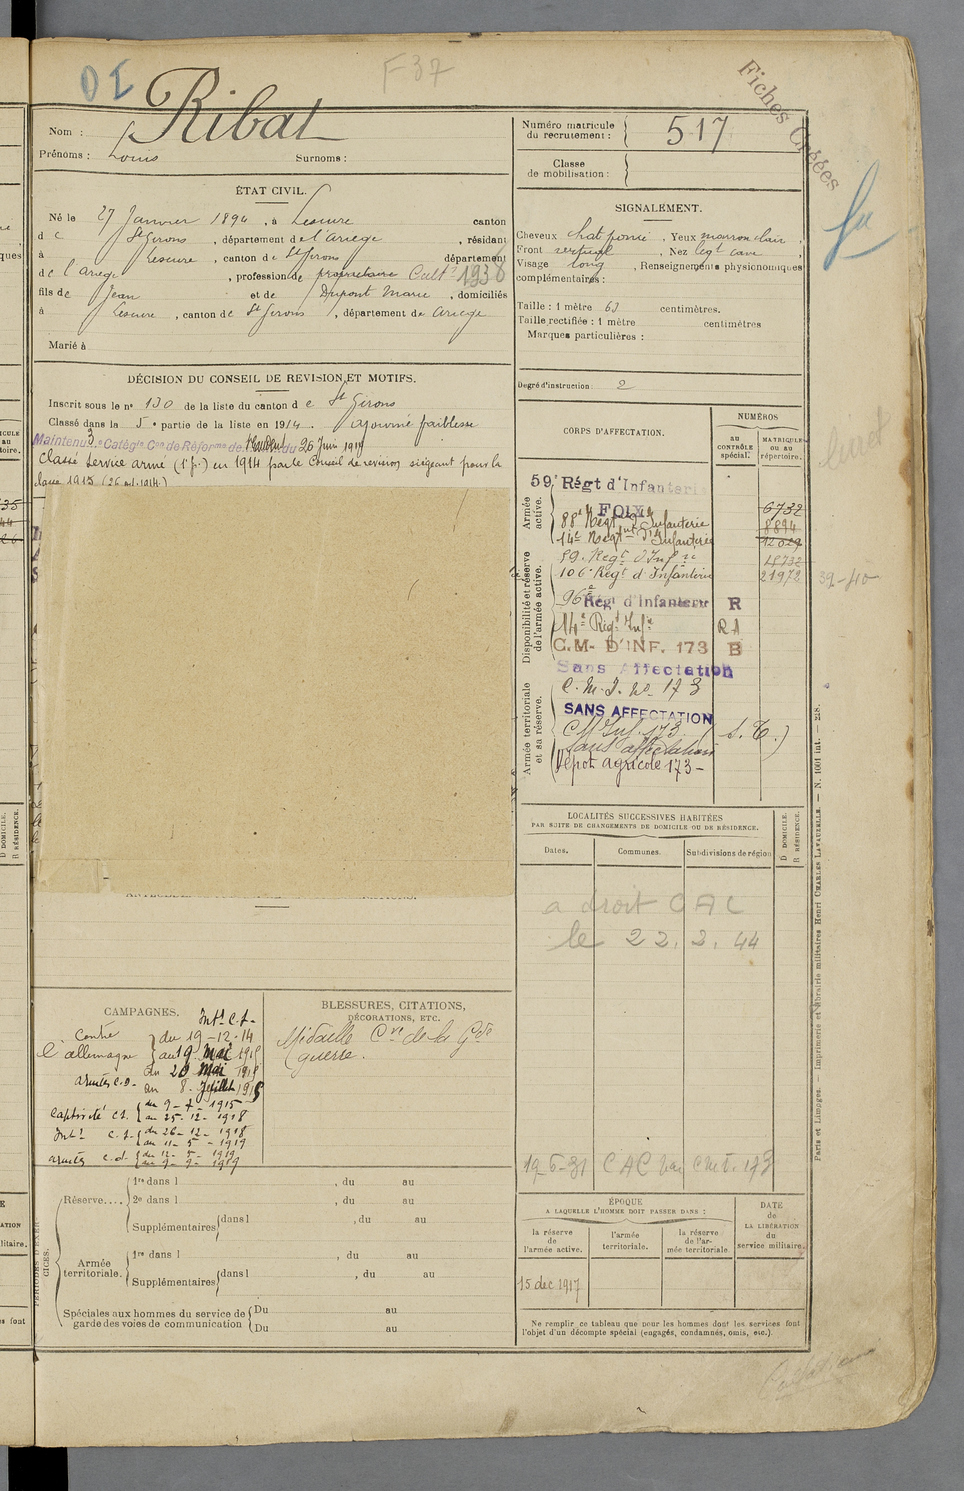 DI
F37
Fiches Créées
Nom : Ribat
Prénoms : Louis Surnoms :
Numéro matricule du recrutement : 517
Classe de mobilisation :
ÉTAT CIVIL.
Né le 27 Janvier 1894, à Lescure canton
de St Girons, département de l'Ariège, résidant
à Lescure, canton de St Girons département
de l'Ariege, profession de propriétaire Cult. 1938
fils de Jean et de Dupont Marie, domiciliés
à Lescure, canton de St Girons, département de Ariège
Marié à
SIGNALEMENT.
Cheveux chat foncé, Yeux marron clair,
Front vertical, Nez legt cave,
Visage long, Renseignements physionomiques
complémentaires :
Taille : 1 mètre 63 centimètres.
Taille rectifiée : 1 mètre centimètres
Marques particulières :
Degré d'instruction 2
DÉCISION DU CONSEIL DE REVISION ET MOTIFS.
Inscrit sous le no 130 de la liste du canton de St Girons
Classé dans la 5e partie de la liste en 1914. ajourné faiblesse
Maintenu 3e Catégie Con de Réforme de du 26 Juin 1917
Classé Service armé (1e p.) en 1914 par le Conseil de revision siégeant pour la
classe 1915 (26 oct. 1914)
CORPS D'AFFECTATION.
NUMÉROS
au contrôle spécial.
matricule ou au répertoire.
Armée active.
59e Régt d'Infanterie
FOIX 6732
88e Régt d'Infanterie 8894
14e Régt d'Infanterie 12029
Disponibilité et réserve de l'armée active.
59e Régt d'Infie
106e Régt d'Infanterie 21972
96e Régt d'Infanterie R
14e Régt Infie RA
C.M. D'INF. 173 B
Sans Affectation
Armée territoriale et sa réserve.
C.M.I. No 173
SANS AFFECTATION
C M Inf. 173. (S. T.)
Sans affectation
Dépôt agricole 173 -
39-40
LOCALITÉS SUCCESSIVES HABITÉES
PAR SUITE DE CHANGEMENTS DE DOMICILE OU DE RÉSIDENCE.
Dates. Communes. Subdivisions de région
D DOMICILE.
R RÉSIDENCE.
a droit CAC
le 22. 2. 44
CAMPAGNES.
Intr C.S.
Contre l'allemagne du 19-12-14
au 19 Mai 1915
Armées C.D. du 20 Mai 1915
au 8 Juillet 1915
Captivité C.S. du 9-7-1915
au 25-12-1918
Intr C.S. du 26-12-1918
au 11-5-1919
Armées C.d. du 12-5-1919
au 9-9-1919
BLESSURES, CITATIONS,
DÉCORATIONS, ETC.
Médaille Cve de la Gde
guerre.
19-6-31 CAC C.M.I. 173
Réserve.... 1re dans l , du au
2e dans l , du au
Supplémentaires dans l , du au
Armée territoriale. 1re dans l , du au
Supplémentaires dans l , du au
Spéciales aux hommes du service de garde des voies de communication Du au
Du au
PÉRIODES D'EXERCICES.
ÉPOQUE
A LAQUELLE L'HOMME DOIT PASSER DANS :
la réserve de l'armée active.
l'armée territoriale.
la réserve de l'armée territoriale
DATE de LA LIBÉRATION du service militaire.
15 dec 1917
Ne remplir ce tableau que pour les hommes dont les services font
l'objet d'un décompte spécial (engagés, condamnés, omis, etc.).
Paris et Limoges. — Imprimerie et librairie militaires Henri CHARLES-LAVAUZELLE. — N. 1001 int. — 218.